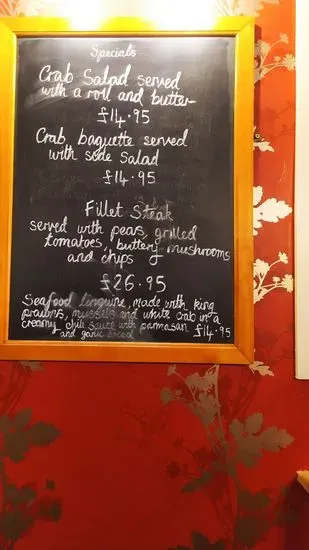 Specials
Crab Salad served
with a roll and butter
£14.95
Crab baguette served
with side salad
£14.95
Fillet Steak
served with peas, grilled
tomatoes, buttery mushrooms
and chips
£26.95
Seafood linguine, made with king
prawns, mussels and white crab in a
creamy chili sauce with parmasan £14.95
and garlic bread